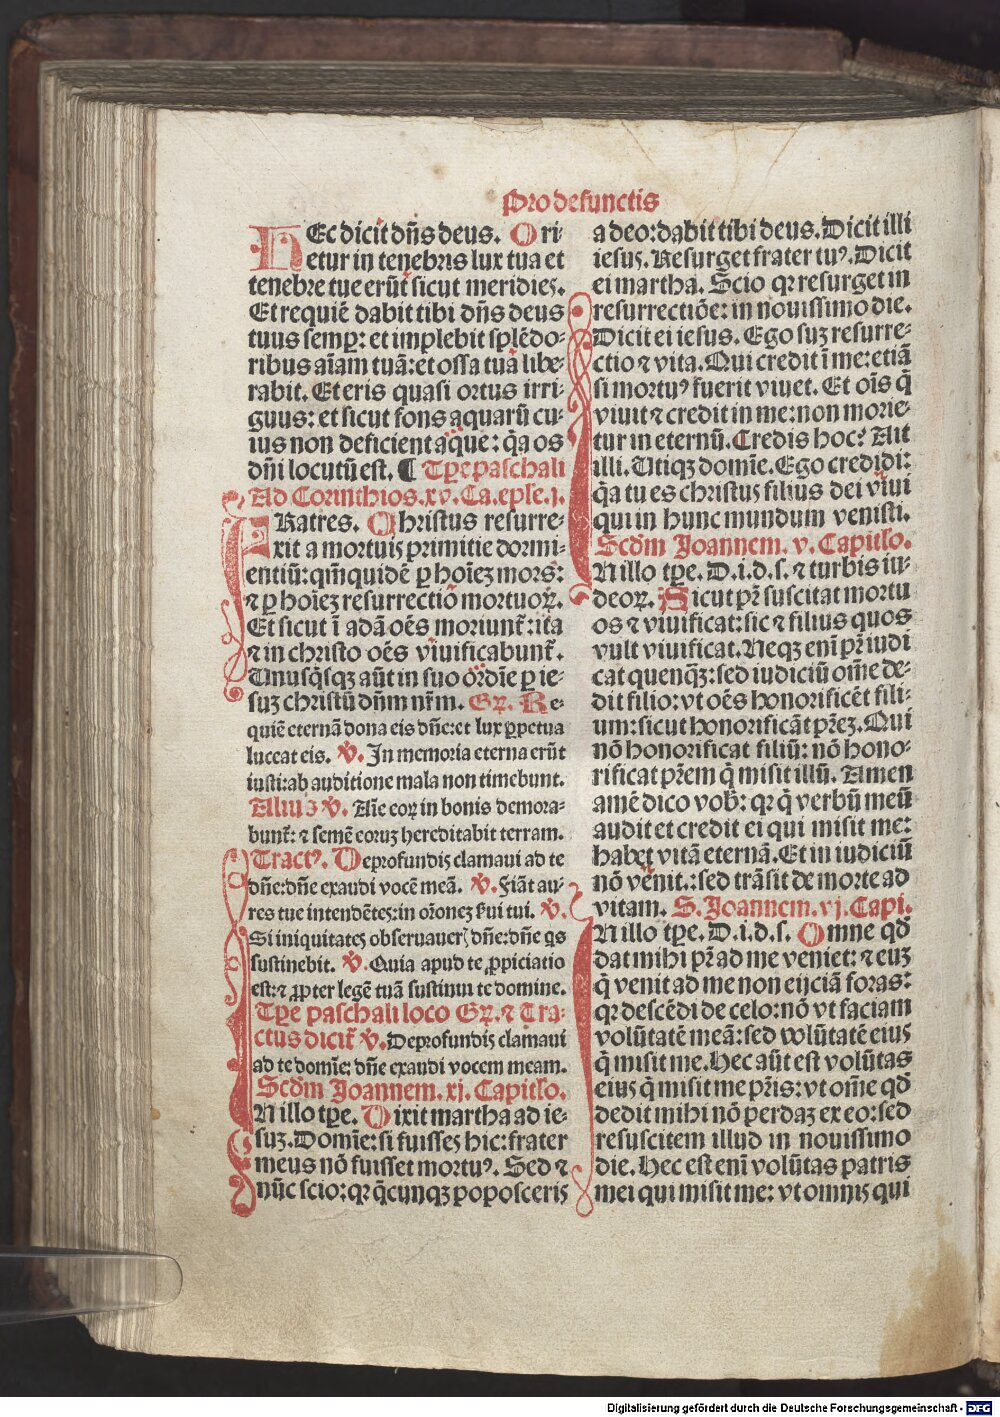 Pro defunctis
HEc dicit dn̄s deus. Ori-
etur in tenebris lux tua et
tenebre tue erūt sicut meridies.
Et requiē dabit tibi dn̄s deus
tuus semꝑ: et implebit splēdo-
ribus aīam tuā: et ossa tua libe-
rabit. Et eris quasi ortus irri-
guus: et sicut fons aquarū cu-
ius non deficient aque: q̄a os
dn̄i locutū est. ¶ Tꝑe paschali
Ad Corinthios. xv. Ca. ep̄le. j.
FRatres. Christus resurre-
xit a mortuis primitie dormi-
entiū: qm̄ quidē ꝑ hoīeꝫ mors:
⁊ ꝑ hoīeꝫ resurrectio mortuoꝝ.
Et sicut ī adā oēs moriunt̄: ita
⁊ in christo oēs viuificabunt̄.
Unusq̄sqꝫ aūt in suo ordīe ꝑ ie-
suꝫ christū dn̄m nr̄m. Gꝝ. Re-
quiē eternā dona eis dn̄e: et lux ꝑpetua
luceat eis. ℣. In memoria eterna erūt
iusti: ab auditione mala non timebunt.
Aliud ℣. Aīe eoꝝ in bonis demora-
bunt̄: ⁊ semē eoruꝫ hereditabit terram.
Tractꝰ. De profundis clamaui ad te
dn̄e: dn̄e exaudi vocē meā. ℣. Fiāt au-
res tue intendētes: in orōneꝫ ẜui tui. ℣.
Si iniquitates obseruaueris dn̄e: dn̄e qs
sustinebit. ℣. Quia apud te ꝓpiciatio
est: ⁊ ꝓpter legē tuā sustinui te domine.
Tꝑe paschali loco Gꝝ. ⁊ Tra-
ctus dicit̄ ℣. De profundis clamaui
ad te domīe: dn̄e exaudi vocem meam.
Scd̄m Joannem. xj. Capitł̄o.
IN illo tꝑe. Dixit martha ad ie-
suꝫ. Domīe: si fuisses hic: frater
meus nō fuisset mortuꝰ. Sed ⁊
nūc scio: qꝛ q̄cunqꝫ poposceris
a deo: dabit tibi deus. Dicit illi
iesus. Resurget frater tuꝰ. Dicit
ei martha. Scio qꝛ resurget in
resurrectiōe: in nouissimo die.
Dicit ei iesus. Ego suꝫ resurre-
ctio ⁊ vita. Qui credit ī me: etiā
si mortuꝰ fuerit viuet. Et oīs q̄
viuit ⁊ credit in me: non morie-
tur in eternū. Credis hoc? Ait
illi. Utiqꝫ domīe. Ego credidi:
q̄a tu es christus filius dei viui
qui in hunc mundum venisti.
Scd̄m Joannem. v. Capitł̄o.
IN illo tꝑe. D. i. d. s. ⁊ turbis iu-
deoꝝ. Sicut pr̄ suscitat mortu
os ⁊ viuificat: sic ⁊ filius quos
vult viuificat. Neqꝫ enī pr̄ iudi
cat quenqꝫ: sed iudiciū om̄e de-
dit filio: vt oēs honorificēt fili-
um: sicut honorificāt pr̄eꝫ. Qui
nō honorificat filiū: nō hono-
rificat pr̄em q̄ misit illū. Amen
amē dico vob̄: qꝛ q̄ verbū meū
audit et credit ei qui misit me:
habet vitā eternā. Et in iudiciū
nō venit: sed trāsit de morte ad
vitam. S. Joannem. vj. Capi.
IN illo tꝑe. D. i. d. s. Omne qd̄
dat mihi pr̄ ad me veniet: ⁊ euꝫ
q̄ venit ad me non eijciā foras:
qꝛ descēdi de celo: nō vt faciam
volūtatē meā: sed volūtatē eius
q̄ misit me. Hec aūt est volūtas
eius q̄ misit me pr̄is: vt om̄e qd̄
dedit mihi nō perdaꝫ ex eo: sed
resuscitem illud in nouissimo
die. Hec est enī volūtas patris
mei qui misit me: vt omnis qui
Digitalisierung gefördert durch die Deutsche Forschungsgemeinschaft - DFG